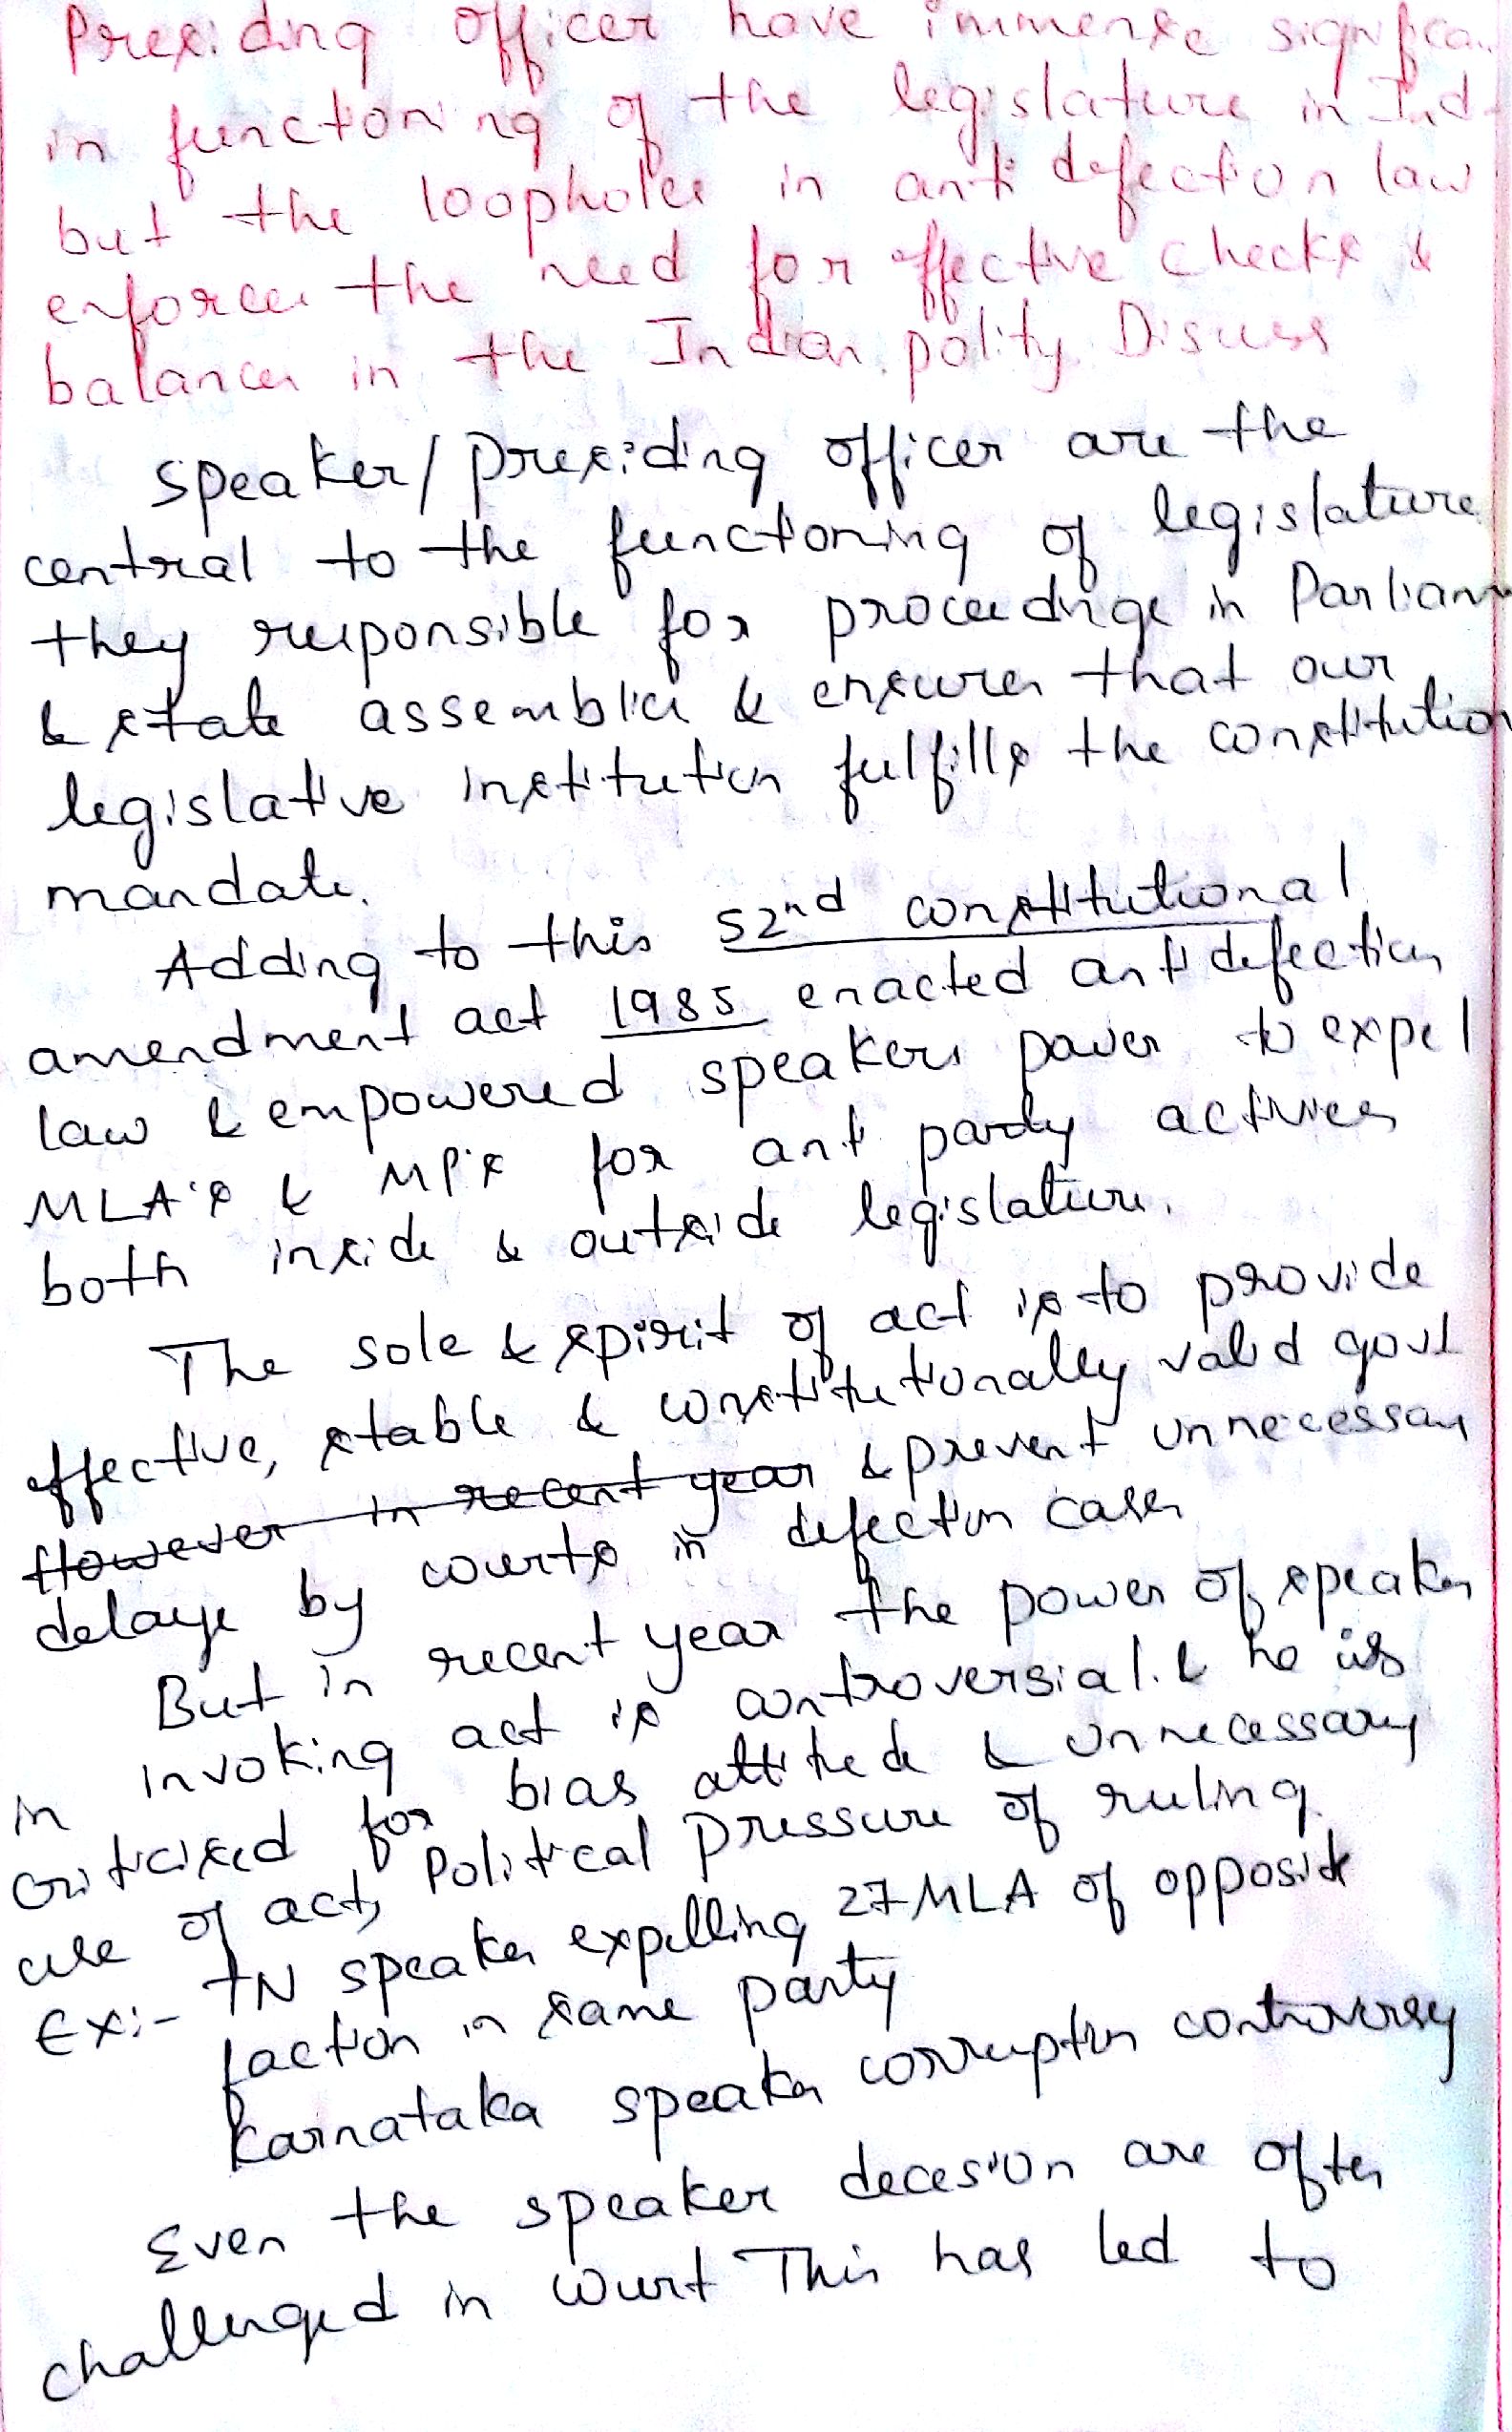 Presiding officer have immense significa
in functioning of the legislature in Ind
but the loopholes in anti defection law
enforces the need for effective checks &
balances in the Indian polity. Discuss
Speaker/presiding officer are the
central to the functioning of legislature
they responsible for proceedings in Parliam
& state assemblies & ensures that our
legislative institution fulfills the constitution
mandate.
Adding to this 52nd constitutional
amendment act 1985 enacted anti defection
law & empowered speakers power to expel
MLA's & MP's for anti party activies
both inside & outside legislature.
The sole & spirit of act is to provide
effective, stable & constitutionally valid govt
However in recent year & prevent unnecessary
delays by courts in defection cases
But in recent year the power of speaker
in invoking act is controversial. & he is
criticised for bias attitude & unnecessary
use of act, political pressure of ruling.
Ex:- TN speaker expelling 27 MLA of opposite
faction in same party
Karnataka speaker corruption controversy
Even the speaker decesion are often
challenged in court This has led to